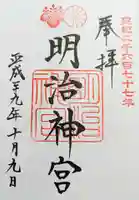 皇紀二千六百七十七年
奉拝
明治神宮
平成二十九年十月九日